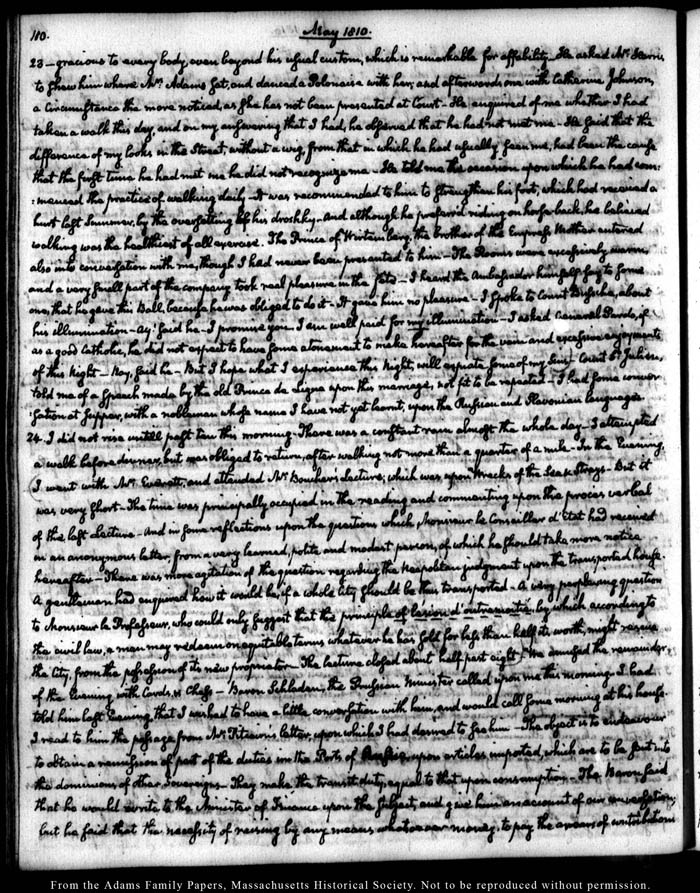 110. May 1810.
23 — gracious to every body, even beyond his usual custom, which is remarkable for affability — He asked Mr. Harris,
to shew him where Mrs. Adams sat, and danced a Polonaise with her; and afterwards one with Catherine Johnson,
a circumstance the more noticed, as she has not been presented at Court — He enquired of me whether I had
taken a walk this day, and on my answering that I had, he observed that he had not met me — He said that the
difference of my looks in the Street, without a wig, from that in which he had usually seen me, had been the cause
that the first time he had met me he did not recognize me — He told me the occasion upon which he had com:
:menced the practice of walking daily — It was recommended to him to strengthen his foot, which had received a
hurt last Summer, by the oversetting of his droshky — And although he preferr'd riding on horseback, he believed
walking was the healthiest of all exercise. The Prince of Wirtemberg, the brother of the Empress Mother entered
also into conversation with me, though I had never been presented to him — The Rooms were excessively warm,
and a very small part of the company took real pleasure in the fete — I heard the Ambassador himself say to some
one, that he gave this Ball, because he was obliged to do it — It gave him no pleasure — I spoke to Count about
his illumination — ay! said he — I promise you. I am well paid for my illumination — I asked General Pardo, if
as a good Catholic, he did not expect to have some atonement to make hereafter for the vain and excessive enjoyments
of this Night — Nay, said he — But I hope what I experience this Night, will expiate some of my Sins. Count St. Julien,
told me of a Speech made by the old Prince de Ligne upon this marriage, not fit to be repeated — I had some conver:
:sation at supper, with a nobleman whose name I have not yet learnt, upon the Russian and Slavonian languages.
24. I did not rise untill past ten this morning. There was a constant rain almost the whole day — I attempted
a walk before dinner, but was obliged to return, after walking not more than a quarter of a mile — In the Evening,
I went with Mr. Everett, and attended Mr. Boucher's lecture, which was upon Wrecks of the Sea & Strays — But it
was very short — The time was principally occupied in the reading and commenting upon the proces verbal
of the last Lecture — And in some reflections upon the questions which, Monsieur le Conseiller d'etat had received
in an anonymous letter, from a very learned, polite and modest person, of which he should take more notice
hereafter — There was more agitation of the question regarding the Neapolitan judgment upon the transported house.
A gentleman had enquired how it would be, if a whole City should be thus transported — A very perplexing question
to Monsieur le Professeur, who could only suggest that the principle of lesion d'outremoitié, by which according to
the civil law, a man may redeem on equitable terms whatever he has sold for less than half its worth, might rescue
the City, from the possession of its new proprietor — The lecture closed about half past eight. We amused the remainder
of the Evening with Cards, & Chess — Baron Schladen, the Prussian Minister called upon me this morning. I had
told him last Evening that I wished to have a little conversation with him, and would call some morning at his house.
I read to him the passage from Mr. Pitcairn's letter, upon which I had desired to see him — The object is to endeavour
to obtain a remission of part of the duties in the Ports of upon articles imported, which are to be sent into
the dominions of other Sovereigns. They make the transit duty, equal to that upon consumption — The Baron said
that he would write to the Minister of Finance upon the subject, and give him an account of our conversation,
but he said that the necessity of raising by any means whatsoever money, to pay the arrears of contributions
From the Adams Family Papers, Massachusetts Historical Society. Not to be reproduced without permission.